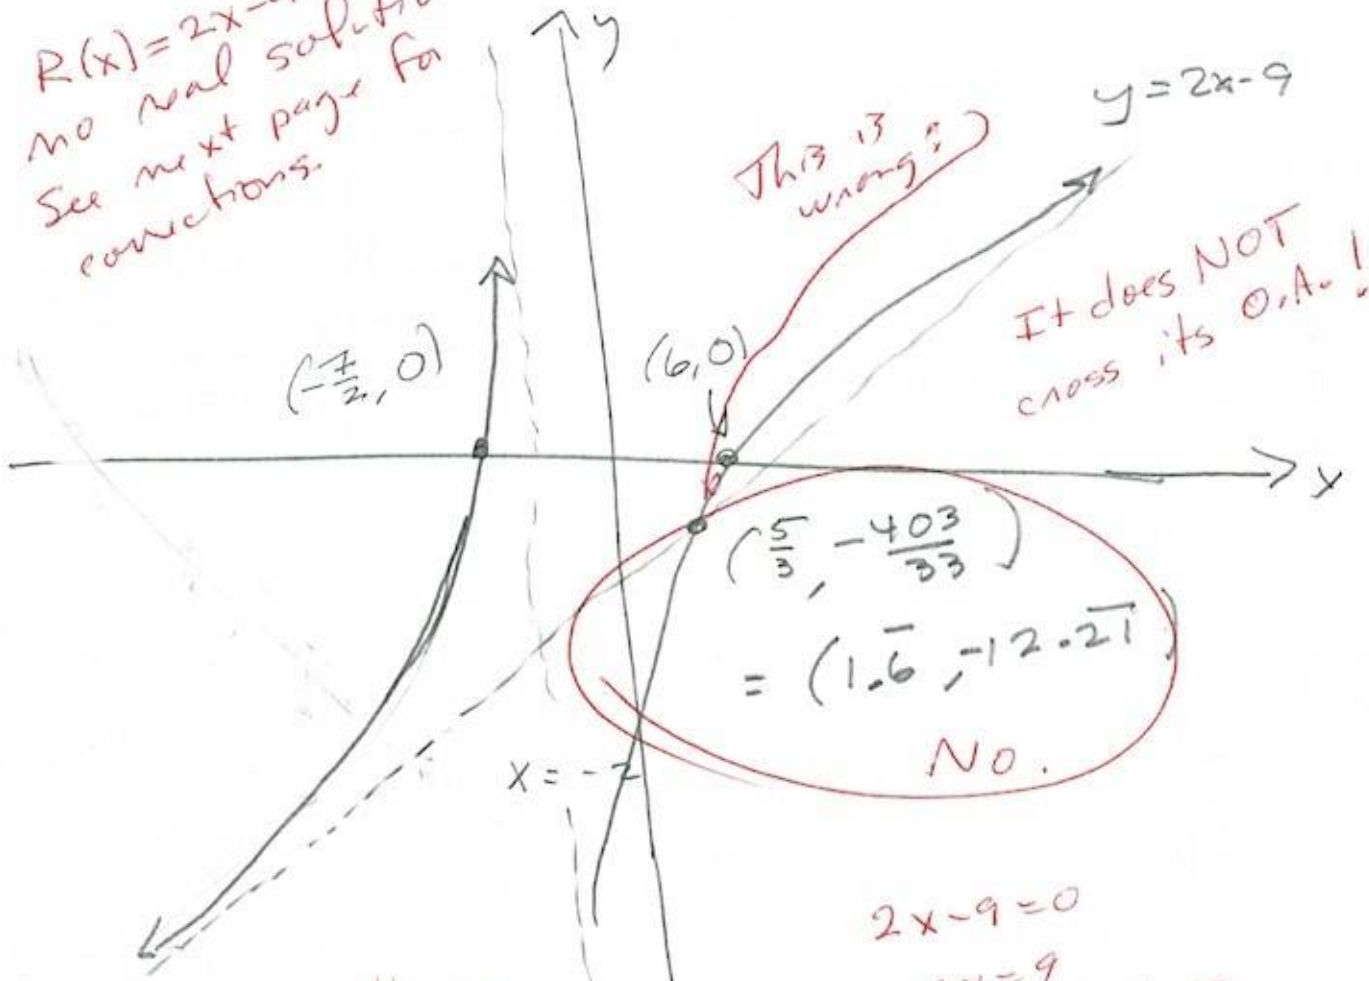 R(x)=2x-
no real
See next page for
corrections.
y
y=2x-9
This is
wrong:
It does NOT
cross its O.A.!
(-7/2, 0)
(6,0)
x
(5/3, -403/33)
= (1.6̅, -12.2̅1̅)
No.
x=-2
2x-9=0
=9